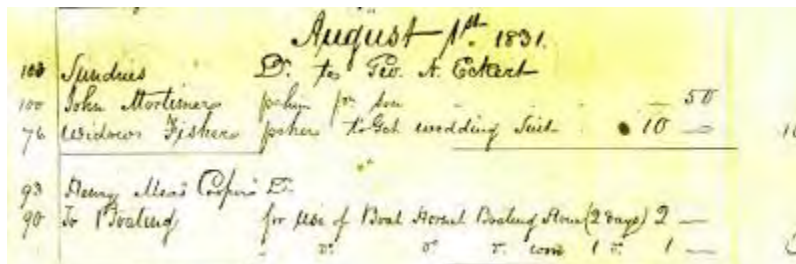 August 1st. 1831.
103 Sundries Dr. to Geo. A. Eckert
100 John Mortimer pr son 50
76 Widow Fisher to Get wedding Suit 10 —
93 Henry Dr.
90 To Boating for use of Boat Boating Stone (2 days) 2 —
" Do. Do. Do. 1 D. 1 —